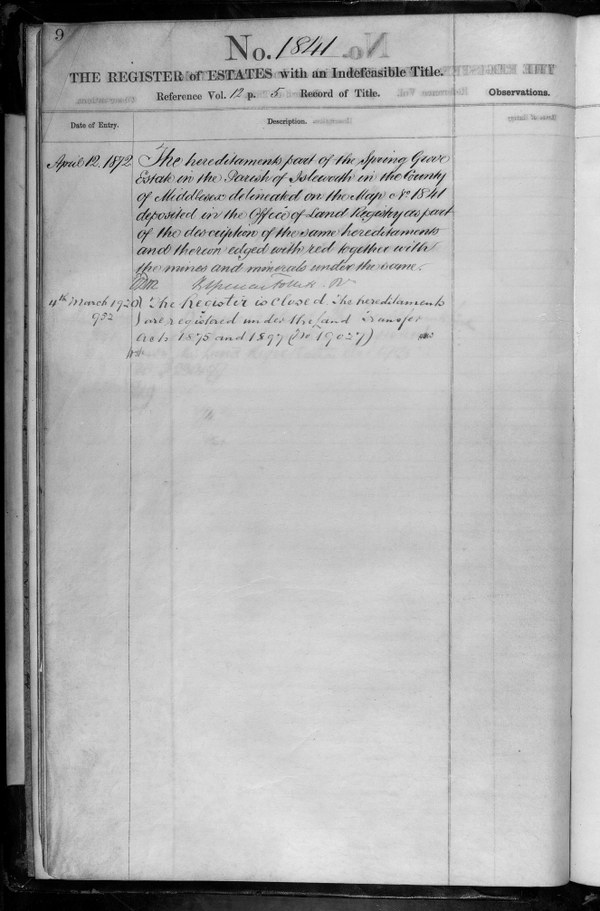 9
No. 1841
THE REGISTER of ESTATES with an Indefeasible Title.
Reference Vol. 12 p. 5 Record of Title.
Observations.
Date of Entry.
Description.
April 12. 1872 The hereditaments part of the Spring Grove
Estate in the Parish of Isleworth in the County
of Middlesex delineated on the Map No 1841
deposited in the Office of Land Registry as part
of the description of the same hereditaments
and thereon edged with red together with
the mines and minerals under the same.
4th March 1920 The Register is closed. The hereditaments
952 are registered under the Land Transfer
Acts 1875 and 1897 (No 19027)